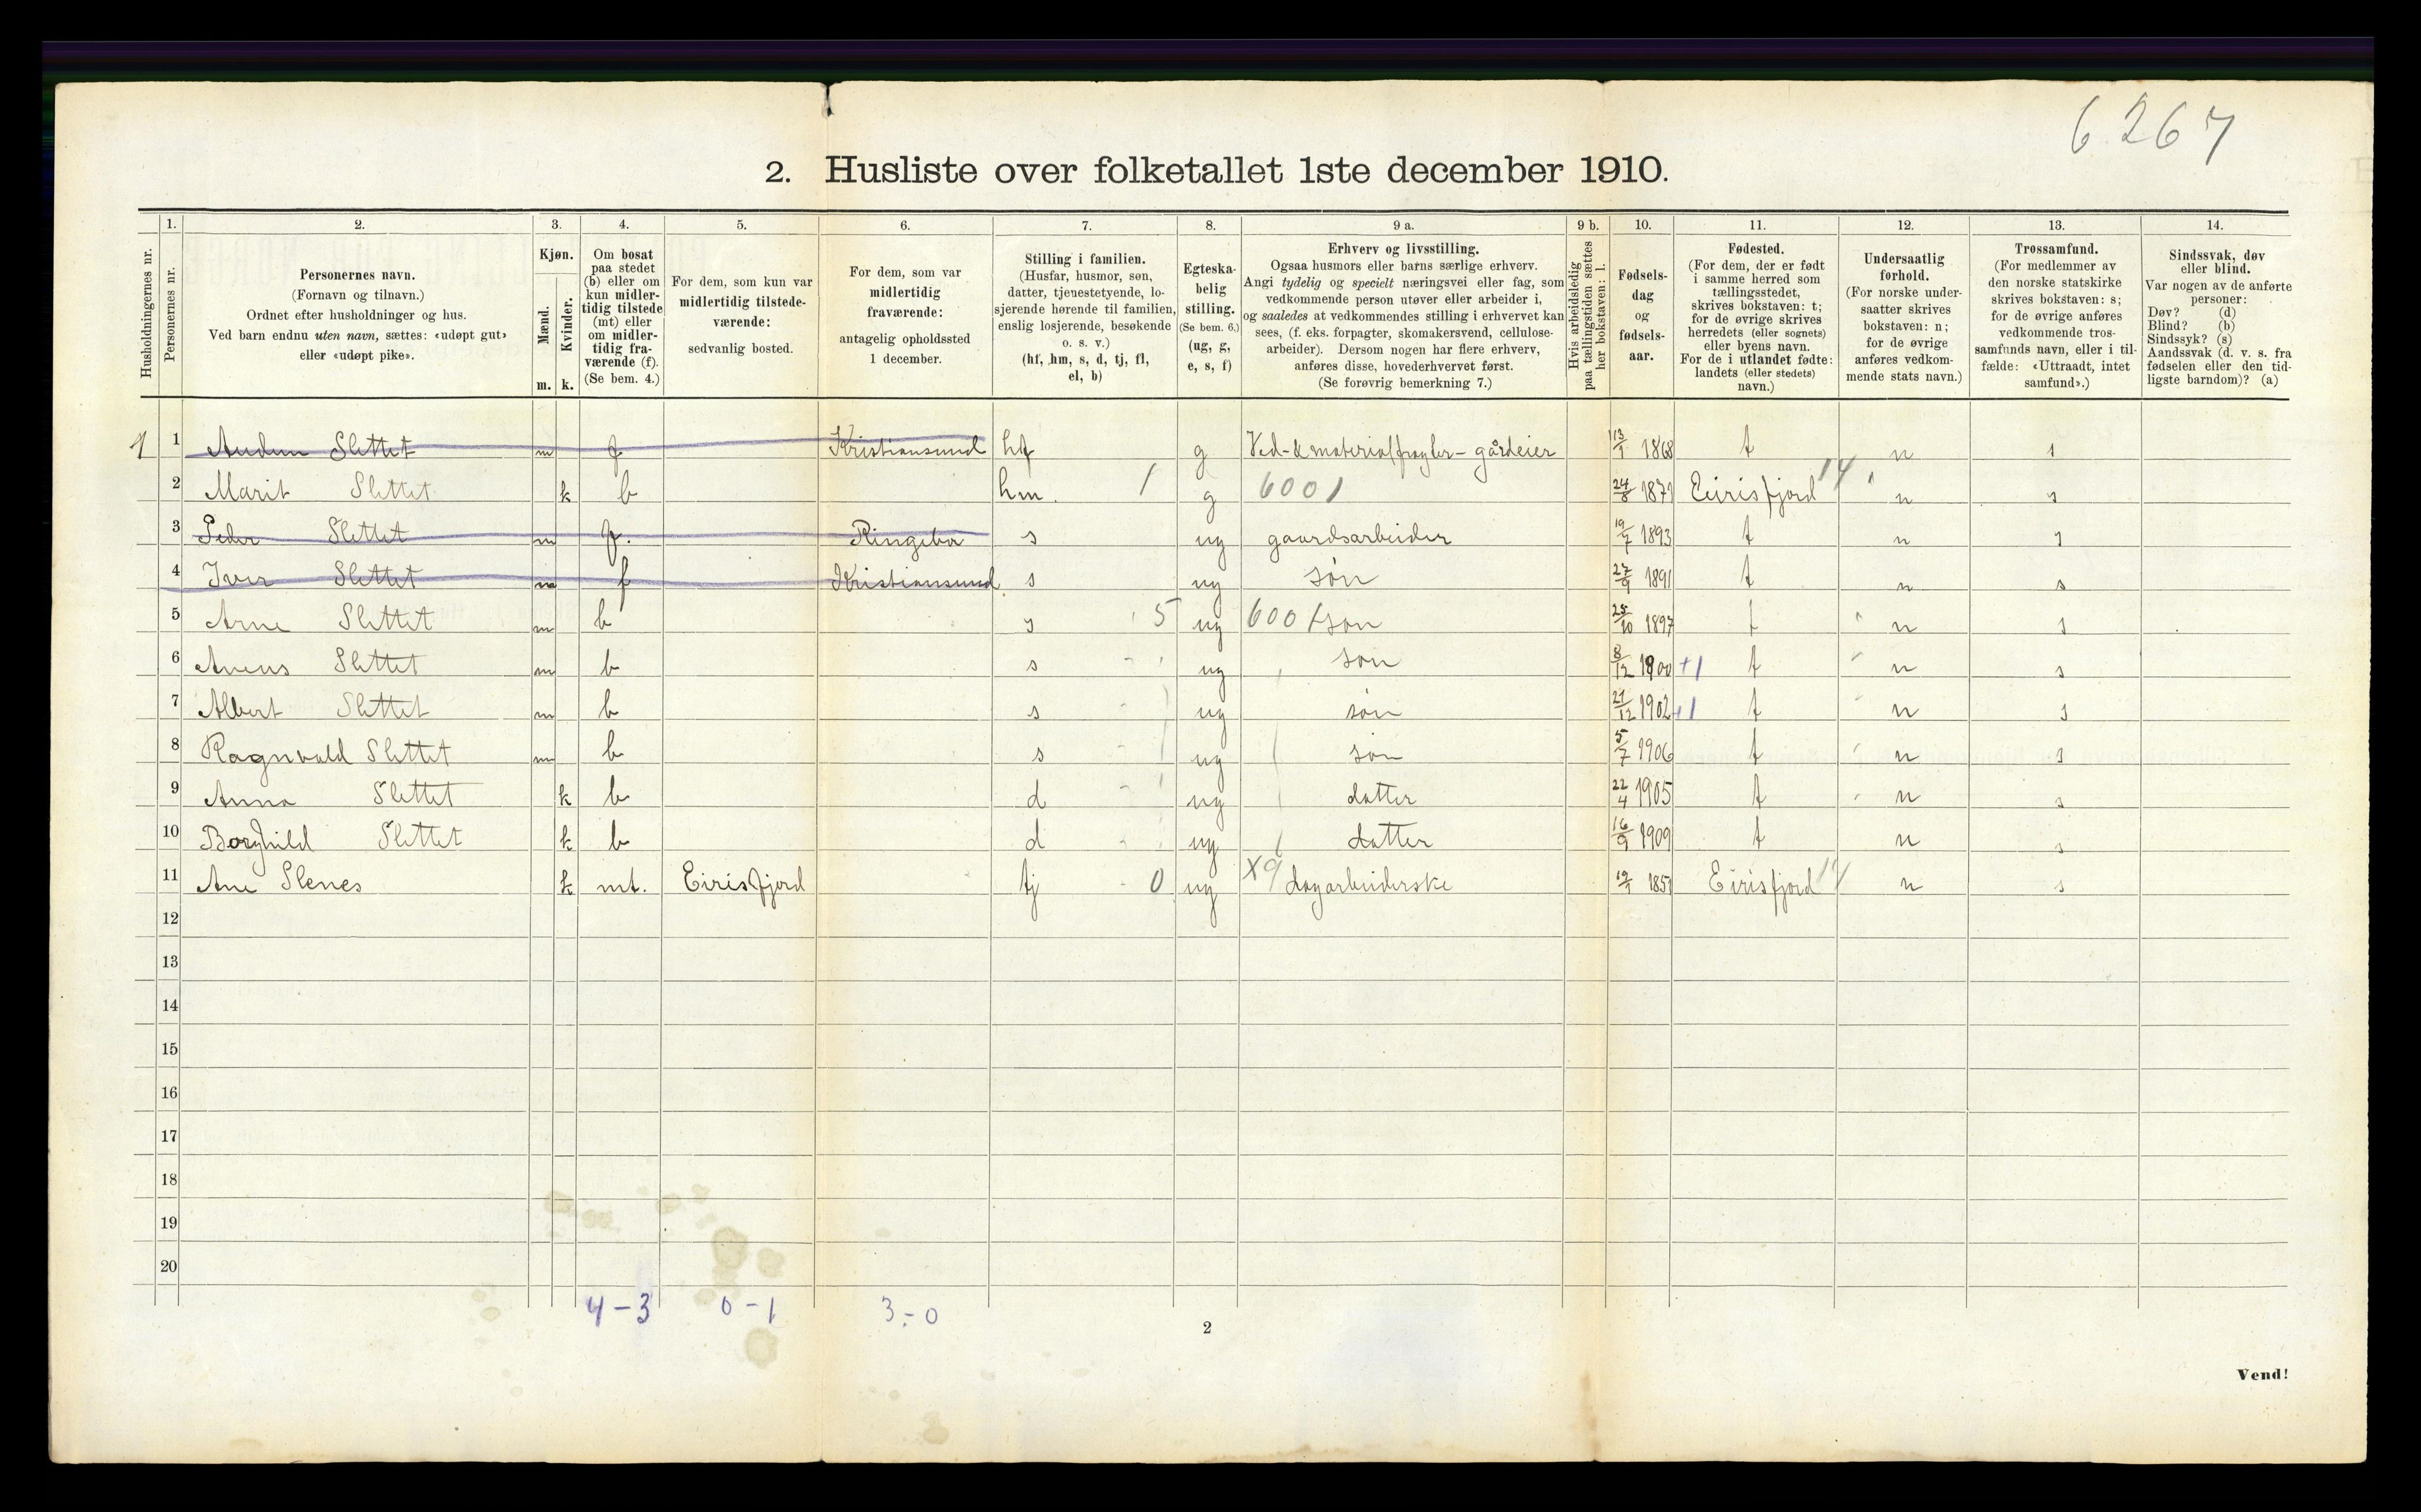 6267
2. Husliste over folketallet 1ste december 1910.
Husholdningernes nr.
1. Personernes nr.
2. Personernes navn.
(Fornavn og tilnavn.)
Ordnet efter husholdninger og hus.
Ved barn endnu uten navn, sættes: «udøpt gut»
eller «udøpt pike».
3. Kjøn.
Mænd. m.
Kvinder. k.
4. Om bosat
paa stedet
(b) eller om
kun midler-
tidig tilstede
(mt) eller
om midler-
tidig fra-
værende (f).
(Se bem. 4.)
5. For dem, som kun var
midlertidig tilstede-
værende:
sedvanlig bosted.
6. For dem, som var
midlertidig
fraværende:
antagelig opholdssted
1 december.
7. Stilling i familien.
(Husfar, husmor, søn,
datter, tjenestetyende, lo-
sjerende hørende til familien,
enslig losjerende, besøkende
o. s. v.)
(hf, hm, s, d, tj, fl,
el, b)
8. Egteska-
belig
stilling.
(Se bem. 6.)
(ug, g,
e, s, f)
9 a. Erhverv og livsstilling.
Ogsaa husmors eller barns særlige erhverv.
Angi tydelig og specielt næringsvei eller fag, som
vedkommende person utøver eller arbeider i,
og saaledes at vedkommendes stilling i erhvervet kan
sees, (f. eks. forpagter, skomakersvend, cellulose-
arbeider). Dersom nogen har flere erhverv,
anføres disse, hovederhvervet først.
(Se forøvrig bemerkning 7.)
9 b. Hvis arbeidsledig
paa tællingstiden sættes
her bokstaven: l.
10. Fødsels-
dag
og
fødsels-
aar.
11. Fødested.
(For dem, der er født
i samme herred som
tællingsstedet,
skrives bokstaven: t;
for de øvrige skrives
herredets (eller sognets)
eller byens navn.
For de i utlandet fødte:
landets (eller stedets)
navn.)
12. Undersaatlig
forhold.
(For norske under-
saatter skrives
bokstaven: n;
for de øvrige
anføres vedkom-
mende stats navn.)
13. Trossamfund.
(For medlemmer av
den norske statskirke
skrives bokstaven: s;
for de øvrige anføres
vedkommende tros-
samfunds navn, eller i til-
fælde: «Uttraadt, intet
samfund».)
14. Sindssvak, døv
eller blind.
Var nogen av de anførte
personer:
Døv? (d)
Blind? (b)
Sindssyk? (s)
Aandssvak (d. v. s. fra
fødselen eller den tid-
ligste barndom)? (a)
1 1 Audun Slettet m f Kristiansund hf g Ved- & gårdeier 13/1 1868 t n s
2 Marit Slettet k b hm. 1 g 6001 24/8 1871 Eirisfjord 14 n s
3 Peder Slettet m f. Ringebu s ug gaardsarbeider 19/7 1893 t n s
4 Iver Slettet m f Kristiansund s ug søn 27/9 1891 t n s
5 Arne Slettet m b s 5 ug 6001 søn 25/10 1897 t n s
6 Slettet m b s ug søn 8/12 1900 +1 t n s
7 Albert Slettet m b s ug søn 21/12 1902 +1 t n s
8 Ragnvald Slettet m b s ug søn 5/7 1906 t n s
9 Anna Slettet k b d ug datter 22/4 1905 t n s
10 Borghild Slettet k b d ug datter 16/9 1909 t n s
11 Ane Slenes k mt. Eirisfjord tj 0 ug X9 dagarbeiderske 19/1 1851 Eirisfjord 14 n s
12
13
14
15
16
17
18
19
20
4-3 0-1 3-0
2
Vend!